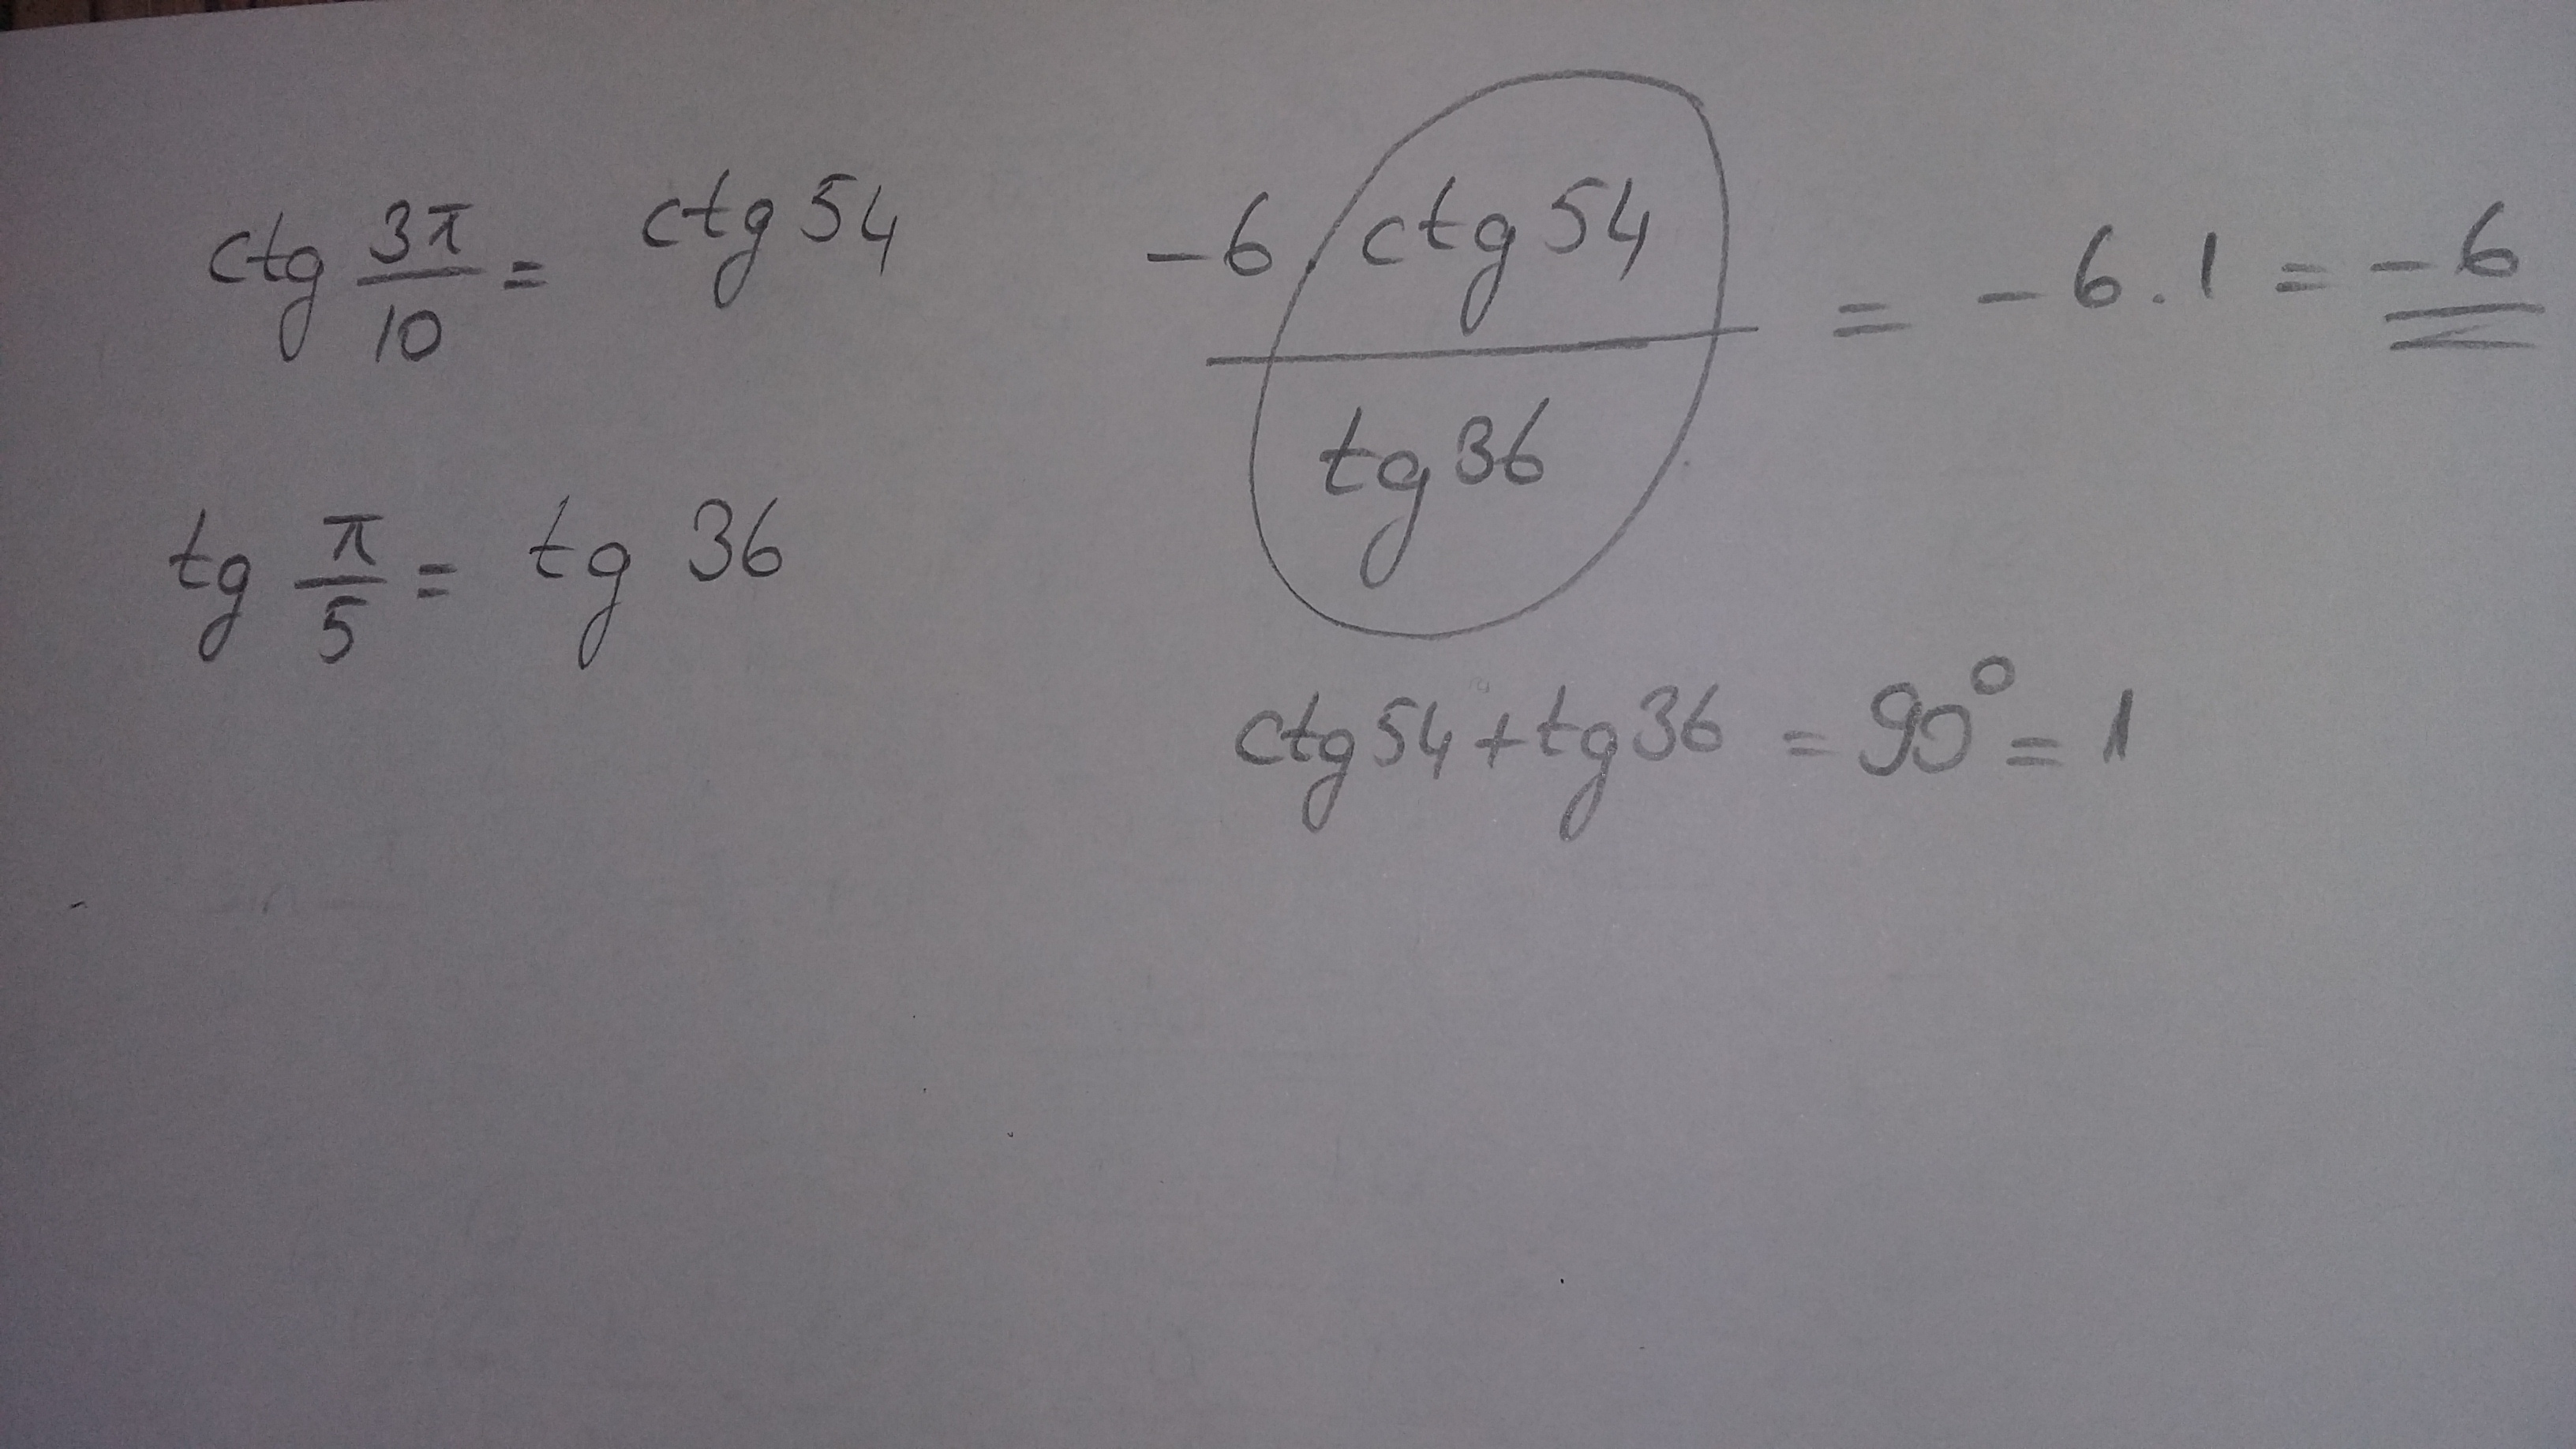 ctg 3π/10 = ctg 54
tg π/5 = tg 36
-6 . ctg 54 / tg 36 = -6 . 1 = -6
ctg 54 + tg 36 = 90° = 1